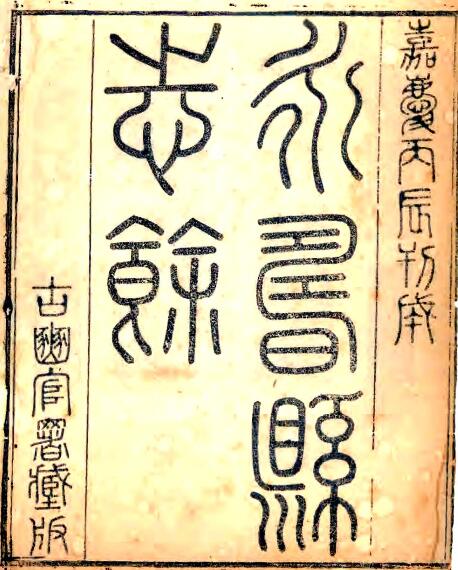 嘉慶丙辰刊成
永壽縣
志餘
古豳官署藏版